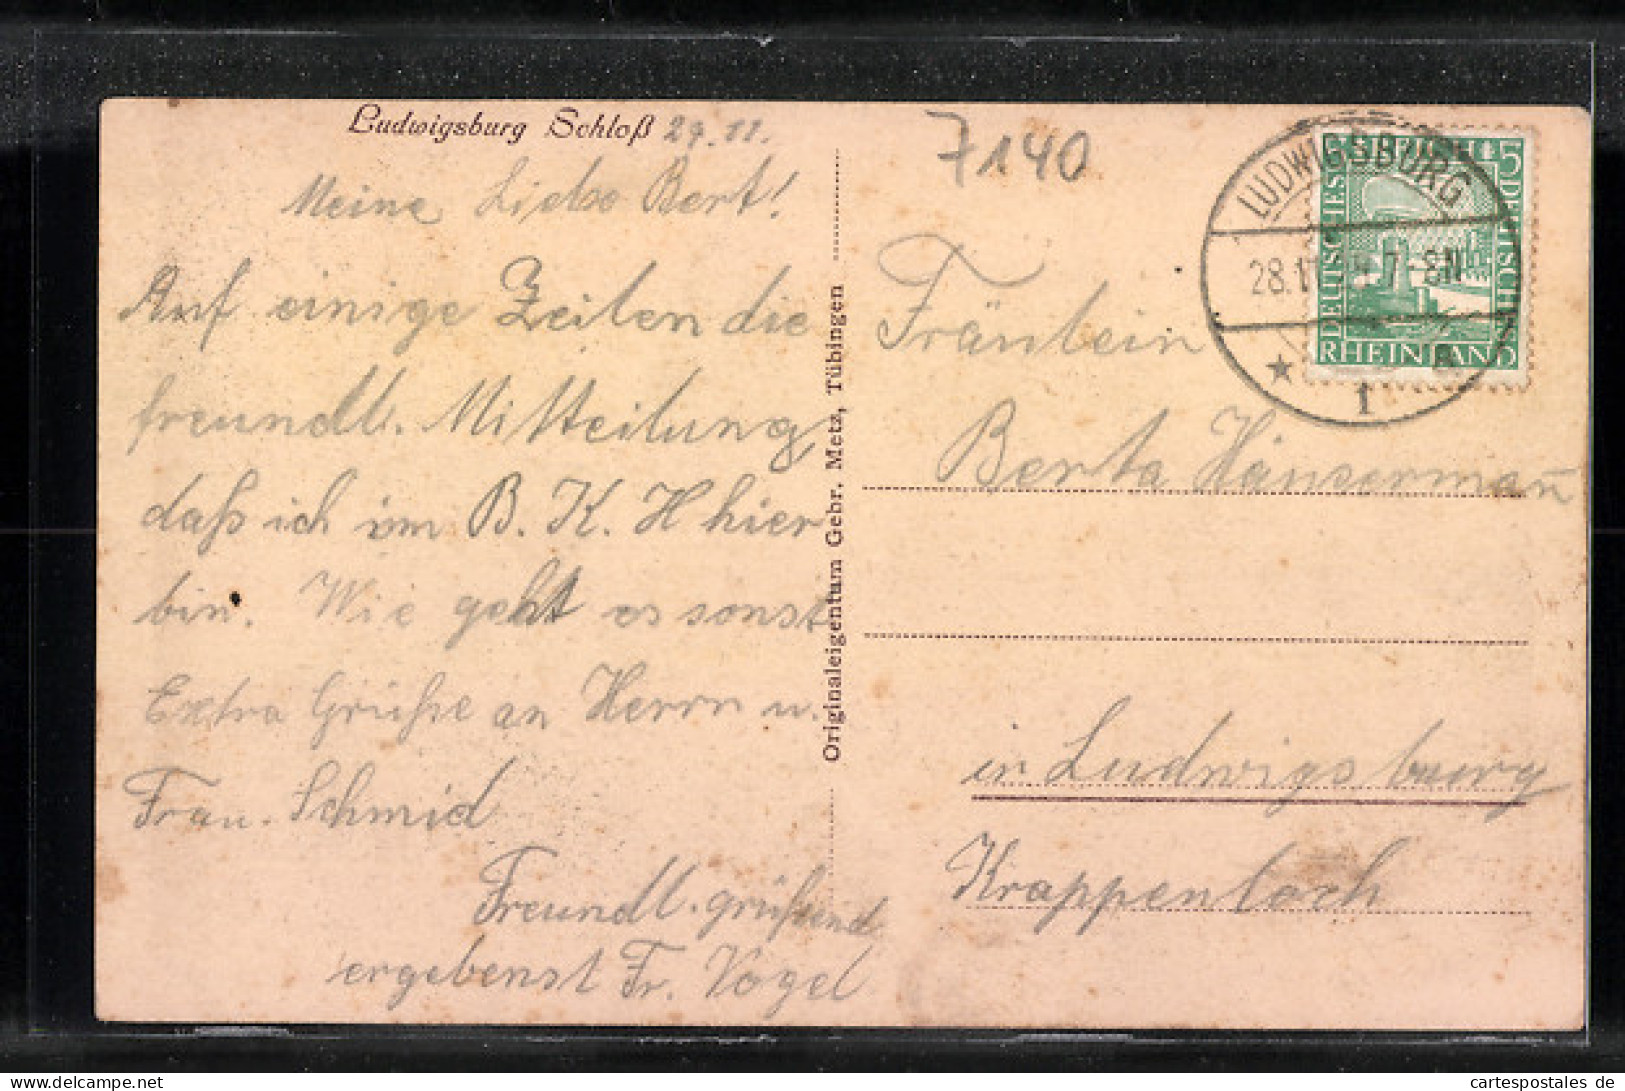 Ludwigsburg Schloß 29.11.
Meine Liebe Bert!
Auf einige Zeilen die
freundl. Mitteilung
daß ich im B. K. H hier
bin. Wie geht es sonst
Extra Grüße an Herrn u.
Frau. Schmid
Freundl. grüßend
ergebenst Fr. Vogel
Originaleigentum Gebr. Metz, Tübingen
7140
LUDWIGSBURG
28.11. 7-8N
1
DEUTSCHES REICH
5 DEUTSCHES
RHEINLAND 5
Fräulein
Berta Häusermañ
in Ludwigsburg
Krappenloch
cartespostales de
cartespostales.de